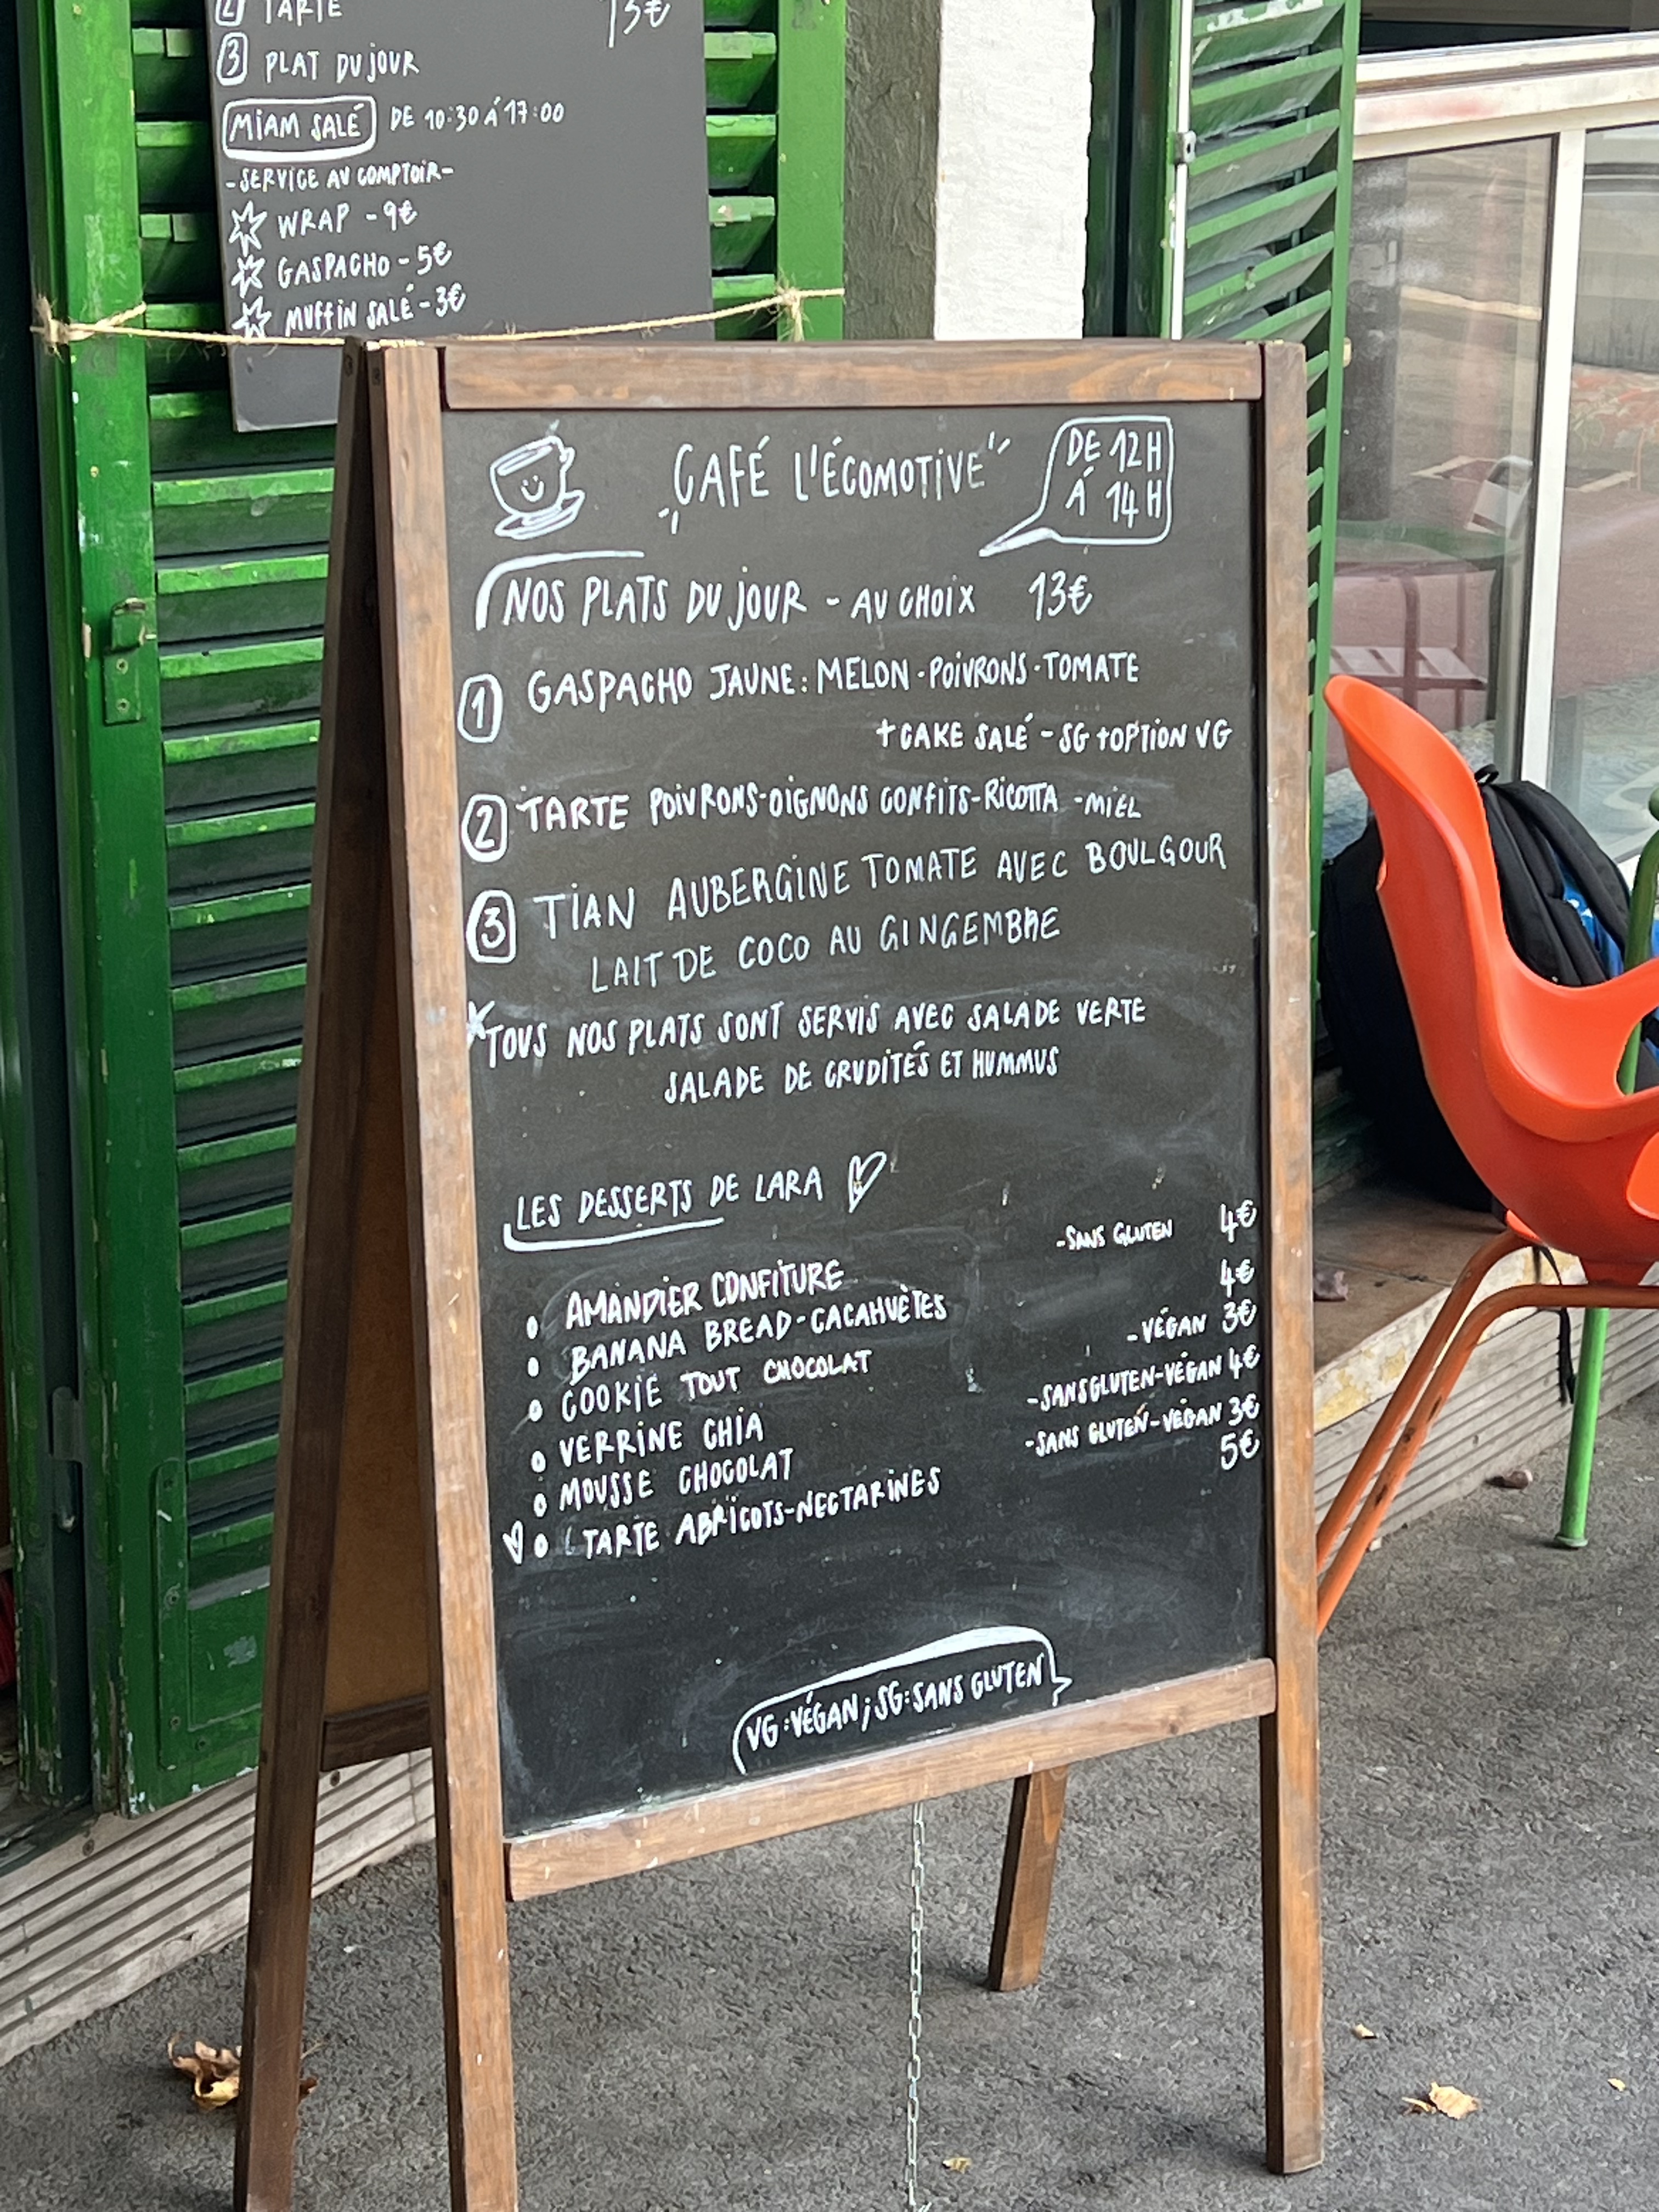 2 TARTE 13€
3 PLAT DU JOUR
MIAM SALÉ DE 10:30 À 17:00
-SERVICE AU COMPTOIR-
WRAP - 9€
GASPACHO - 5€
MUFFIN SALÉ - 3€
CAFÉ L'ÉCOMOTIVE
DE 12H
À 14H
NOS PLATS DU JOUR - AU CHOIX 13€
1 GASPACHO JAUNE: MELON - POIVRONS - TOMATE
+ CAKE SALÉ - SG + OPTION VG
2 TARTE POIVRONS-OIGNONS CONFITS-RICOTTA -MIEL
3 TIAN AUBERGINE TOMATE AVEC BOULGOUR
LAIT DE COCO AU GINGEMBRE
TOUS NOS PLATS SONT SERVIS AVEC SALADE VERTE
SALADE DE CRUDITÉS ET HUMMUS
LES DESSERTS DE LARA
AMANDIER CONFITURE -SANS GLUTEN 4€
BANANA BREAD-CACAHUÈTES 4€
COOKIE TOUT CHOCOLAT -VÉGAN 3€
VERRINE CHIA -SANS GLUTEN-VÉGAN 4€
MOUSSE CHOCOLAT -SANS GLUTEN-VÉGAN 3€
TARTE ABRICOTS-NECTARINES 5€
VG:VÉGAN; SG:SANS GLUTEN